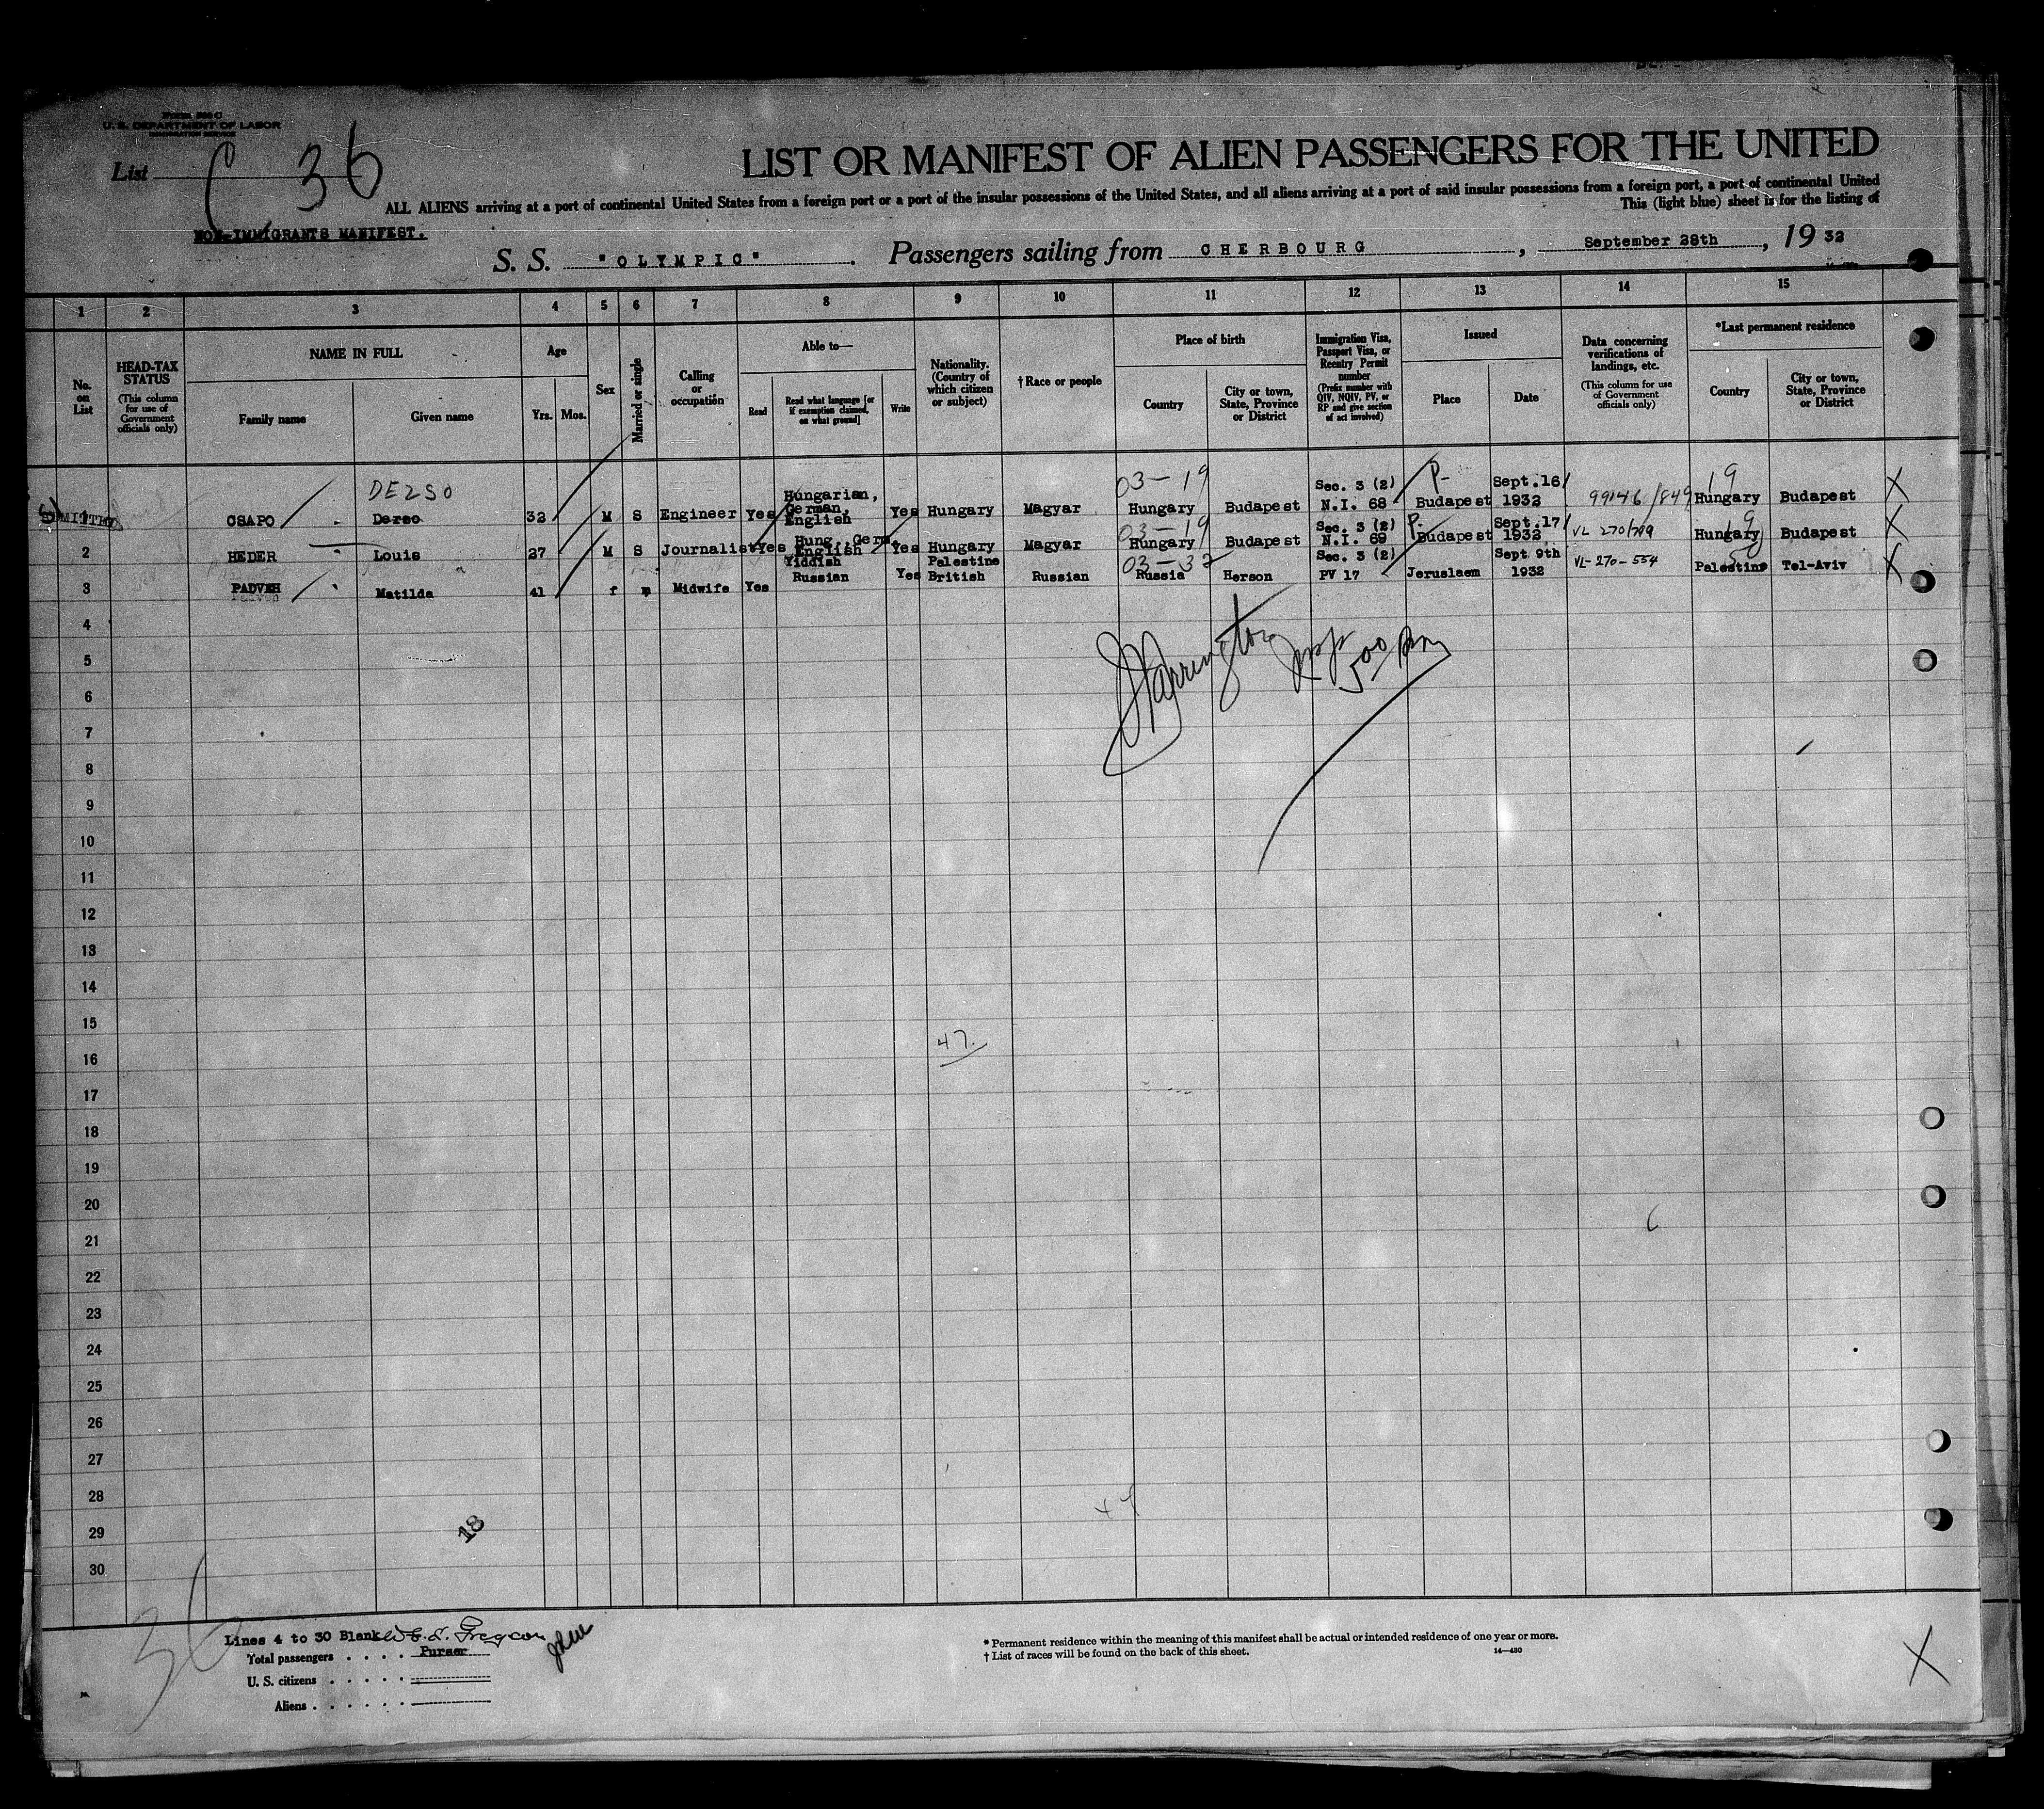 Form 500 C
U. S. DEPARTMENT OF LABOR
IMMIGRATION SERVICE
List C 36
LIST OR MANIFEST OF ALIEN PASSENGERS FOR THE UNITED
ALL ALIENS arriving at a port of continental United States from a foreign port or a port of the insular possessions of the United States, and all aliens arriving at a port of said insular possessions from a foreign port, a port of continental United
This (light blue) sheet is for the listing of
NON-IMMIGRANTS MANIFEST.
S. S. "OLYMPIC". Passengers sailing from CHERBOURG, September 28th, 19 32
1 2 3 4 5 6 7 8 9 10 11 12 13 14 15
No. on List
HEAD-TAX STATUS
(This column for use of Government officials only)
NAME IN FULL
Family name Given name
Age
Yrs. Mos.
Sex
Married or single
Calling or occupation
Able to—
Read
Read what language [or if exemption claimed, on what ground]
Write
Nationality. (Country of which citizen or subject)
† Race or people
Place of birth
Country
City or town, State, Province or District
Immigration Visa, Passport Visa, or Reentry Permit number
(Prefix number with QIV, NQIV, PV, or RP and give section of act involved)
Issued
Place Date
Data concerning verifications of landings, etc.
(This column for use of Government officials only)
*Last permanent residence
Country
City or town, State, Province or District
DEZSO 03-19 P- 19
1 CSAPO Derso 32 M S Engineer Yes Hungarian, German, English Yes Hungary Magyar Hungary Budapest Sec. 3 (2) N.I. 68 Budapest Sept. 16/ 1932 99146/849 Hungary Budapest X
03-19 P- 19
2 HEDER Louis 27 M S Journalist Yes Hung., Germ. English Yes Hungary Magyar Hungary Budapest Sec. 3 (2) N.I. 69 Budapest Sept. 17/ 1932 Hungary Budapest X
03-32
3 PADVEH Matilda 41 f m Midwife Yes Yiddish Russian Yes Palestine British Russian Russia Herson Sec. 3 (2) PV 17 Jeruslaem Sept 9th 1932 VL-270-554 Palestine Tel-Aviv X
4
5
500 pm
6
7
8
9
10
11
12
13
14
15
47.
16
17
18
19
20
21
22
23
24
25
26
27
28
29
18
30
36
Lines 4 to 30 Blank
Purser
Total passengers . . . .
U. S. citizens . . . . .
Aliens . . . . . .
* Permanent residence within the meaning of this manifest shall be actual or intended residence of one year or more.
† List of races will be found on the back of this sheet.
14—430
X